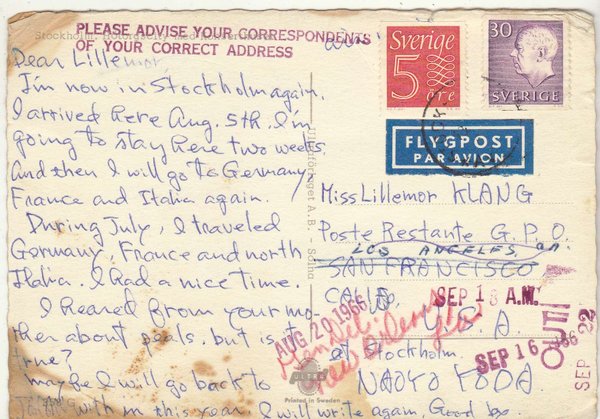 PLEASE ADVISE YOUR CORRESPONDENTS
OF YOUR CORRECT ADDRESS
Stockholm.
Dear Lillemor
I'm now in Stockholm again.
I arrived here Aug. 5th. I'm
going to stay here two weeks
and then I will go to Germany
France and Italia again.
During July, I traveled
Germany, France and north
Italia. I had a nice time.
I heared from your mo-
ther about but is it
true?
maybe I will go back to
with in this year. I will write again. Good by
Sverige
5
öre
30
SVERIGE
FLYGPOST
PAR AVION
Miss Lillemor KLANG
Poste Restante G.P.O.
LOS ANGELES, CA.
SAN FRANCISCO
CALIF.
U.S.A.
at Stockholm.
NAOYO KODA
AUG 29 1966
SEP 1 A.M.
SEP 16 66
OUT
SEP 22
A.B. - Solna
Printed in Sweden